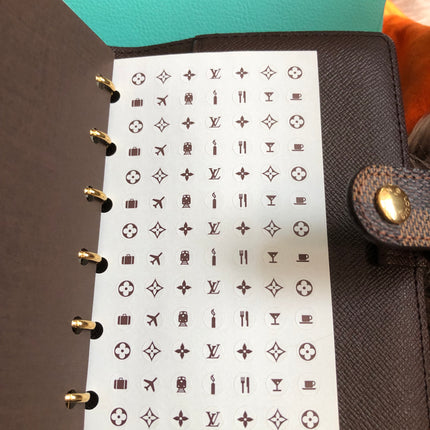 LV
LV
LV
LV
LV
LV
LV